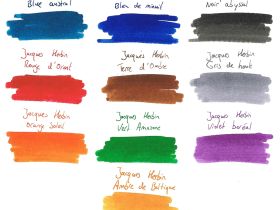 Bleu austral
Bleu de minuit
Noir abyssal
Jacques Herbin
Rouge d'Orient
Jacques Herbin
Terre d'Ombre
Jacques Herbin
Gris de houle
Jacques Herbin
Orange soleil
Jacques Herbin
Vert Amazone
Jacques Herbin
Violet boréal
Jacques Herbin
Ambre de Baltique